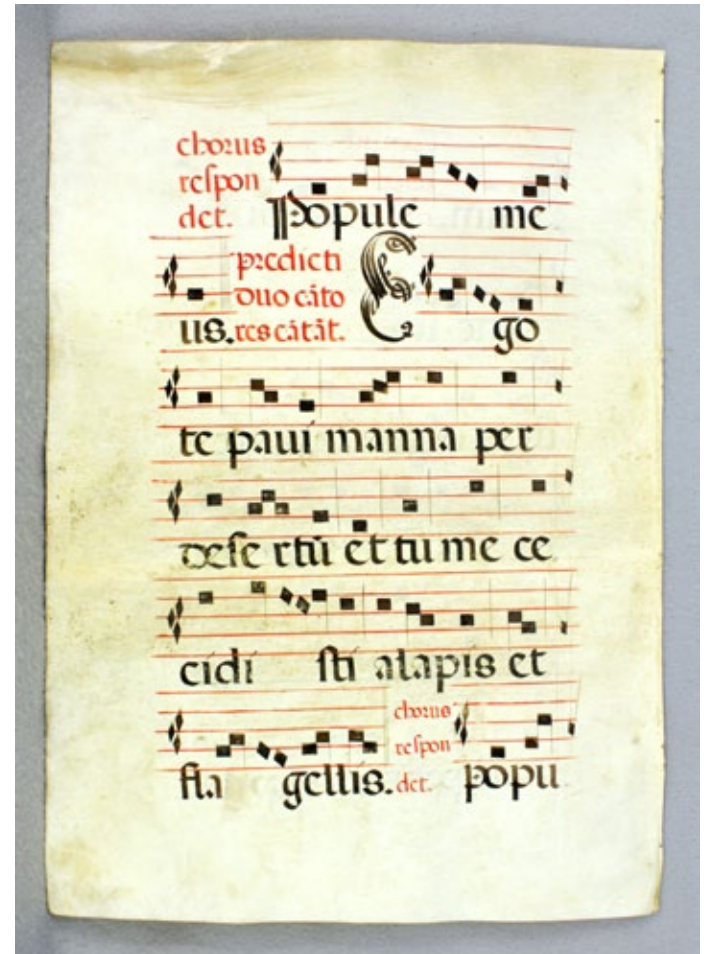 chorus
respon
det. Popule me
us. predicti
duo cãto
res cãtãt. Ego
te paui manna per
dese rtũ et tu me ce
cidi sti alapis et
fla gellis. chorus
respon
det. popu